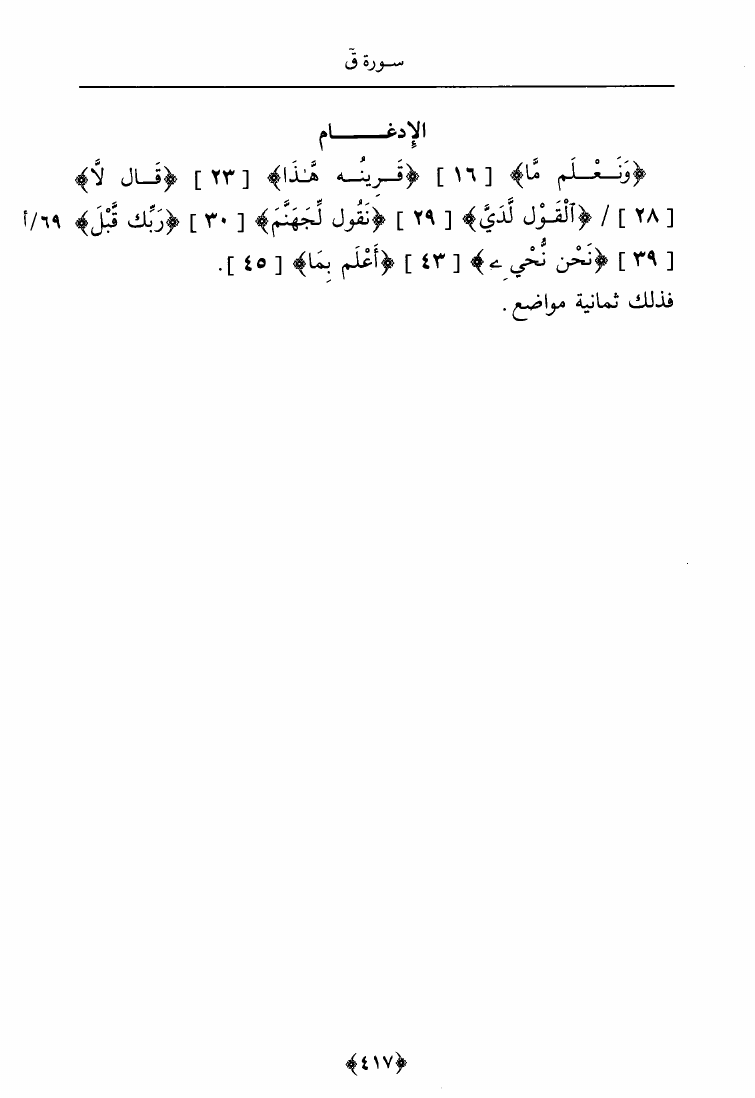 سورة قٓ
الإدغام
﴿وَنَعْلَم مَّا﴾ [ ١٦ ] ﴿قَرِينُه هَّـٰذَا﴾ [ ٢٣ ] ﴿قَال لَّا﴾
[ ٢٨ ] / ﴿ٱلْقَوْل لَّدَيَّ﴾ [ ٢٩ ] ﴿نَقُول لِّجَهَنَّمَ﴾ [ ٣٠ ] ﴿رَبِّك قَّبْلَ﴾ ٦٩/أ
[ ٣٩ ] ﴿نَحْن نُّحْيِۦ﴾ [ ٤٣ ] ﴿أَعْلَم بِمَا﴾ [ ٤٥ ].
فذلك ثمانية مواضع.
﴿٤١٧﴾